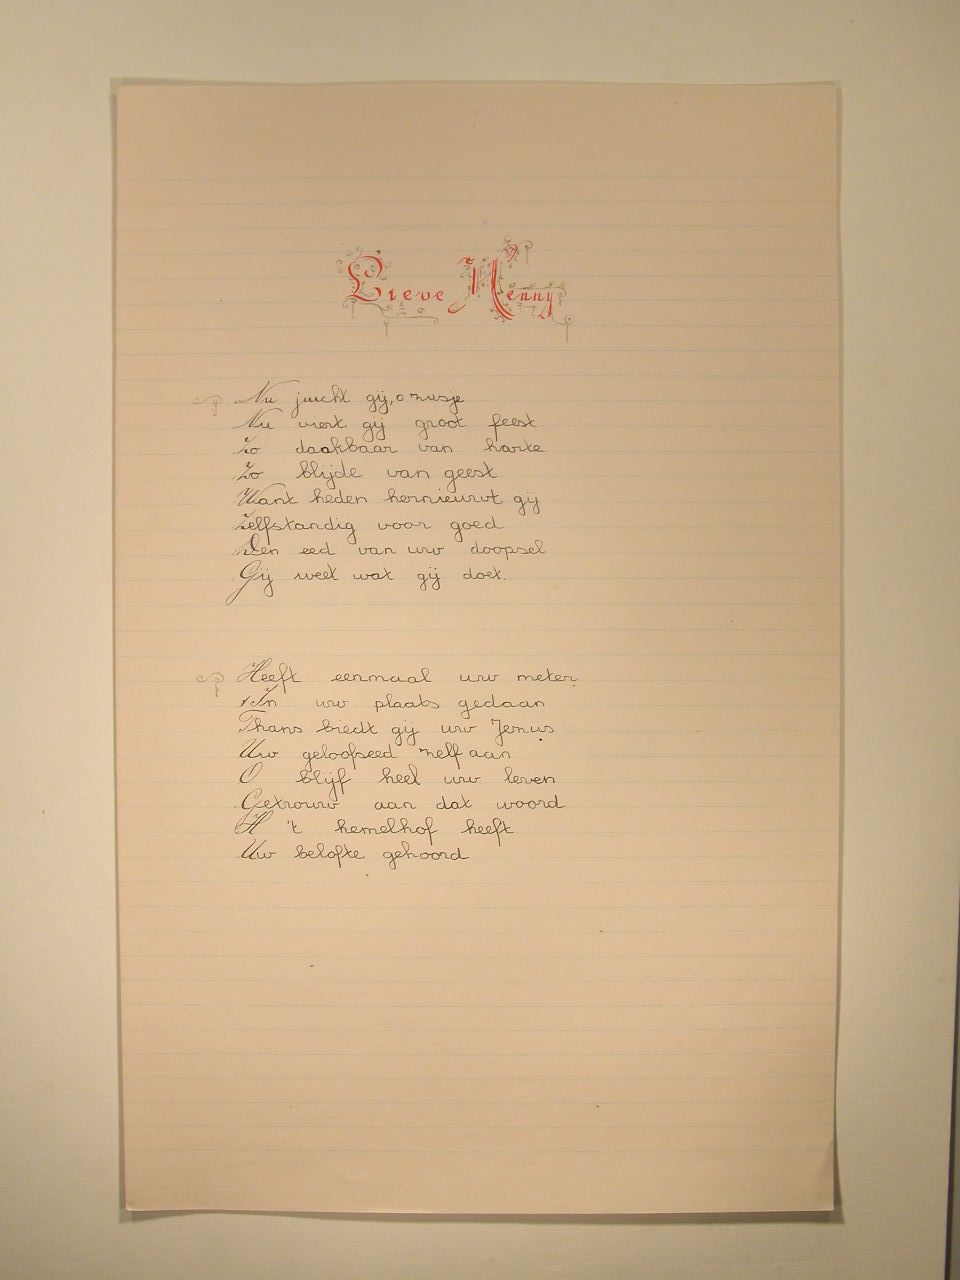 Lieve Henny
Nu juicht gij, o zusje
Nu viert gij groot feest
Zo dankbaar van harte
Zo blijde van geest
Want heden hernieuwt gij
Zelfstandig voor goed
Den eed van uw doopsel
Gij weet wat gij doet.
Heeft eenmaal uw meter
In uw plaats gedaan
Thans biedt gij uw Jezus
Uw geloofseed zelf aan
O blijf heel uw leven
Getrouw aan dat woord
H 't hemelhof heeft
Uw belofte gehoord